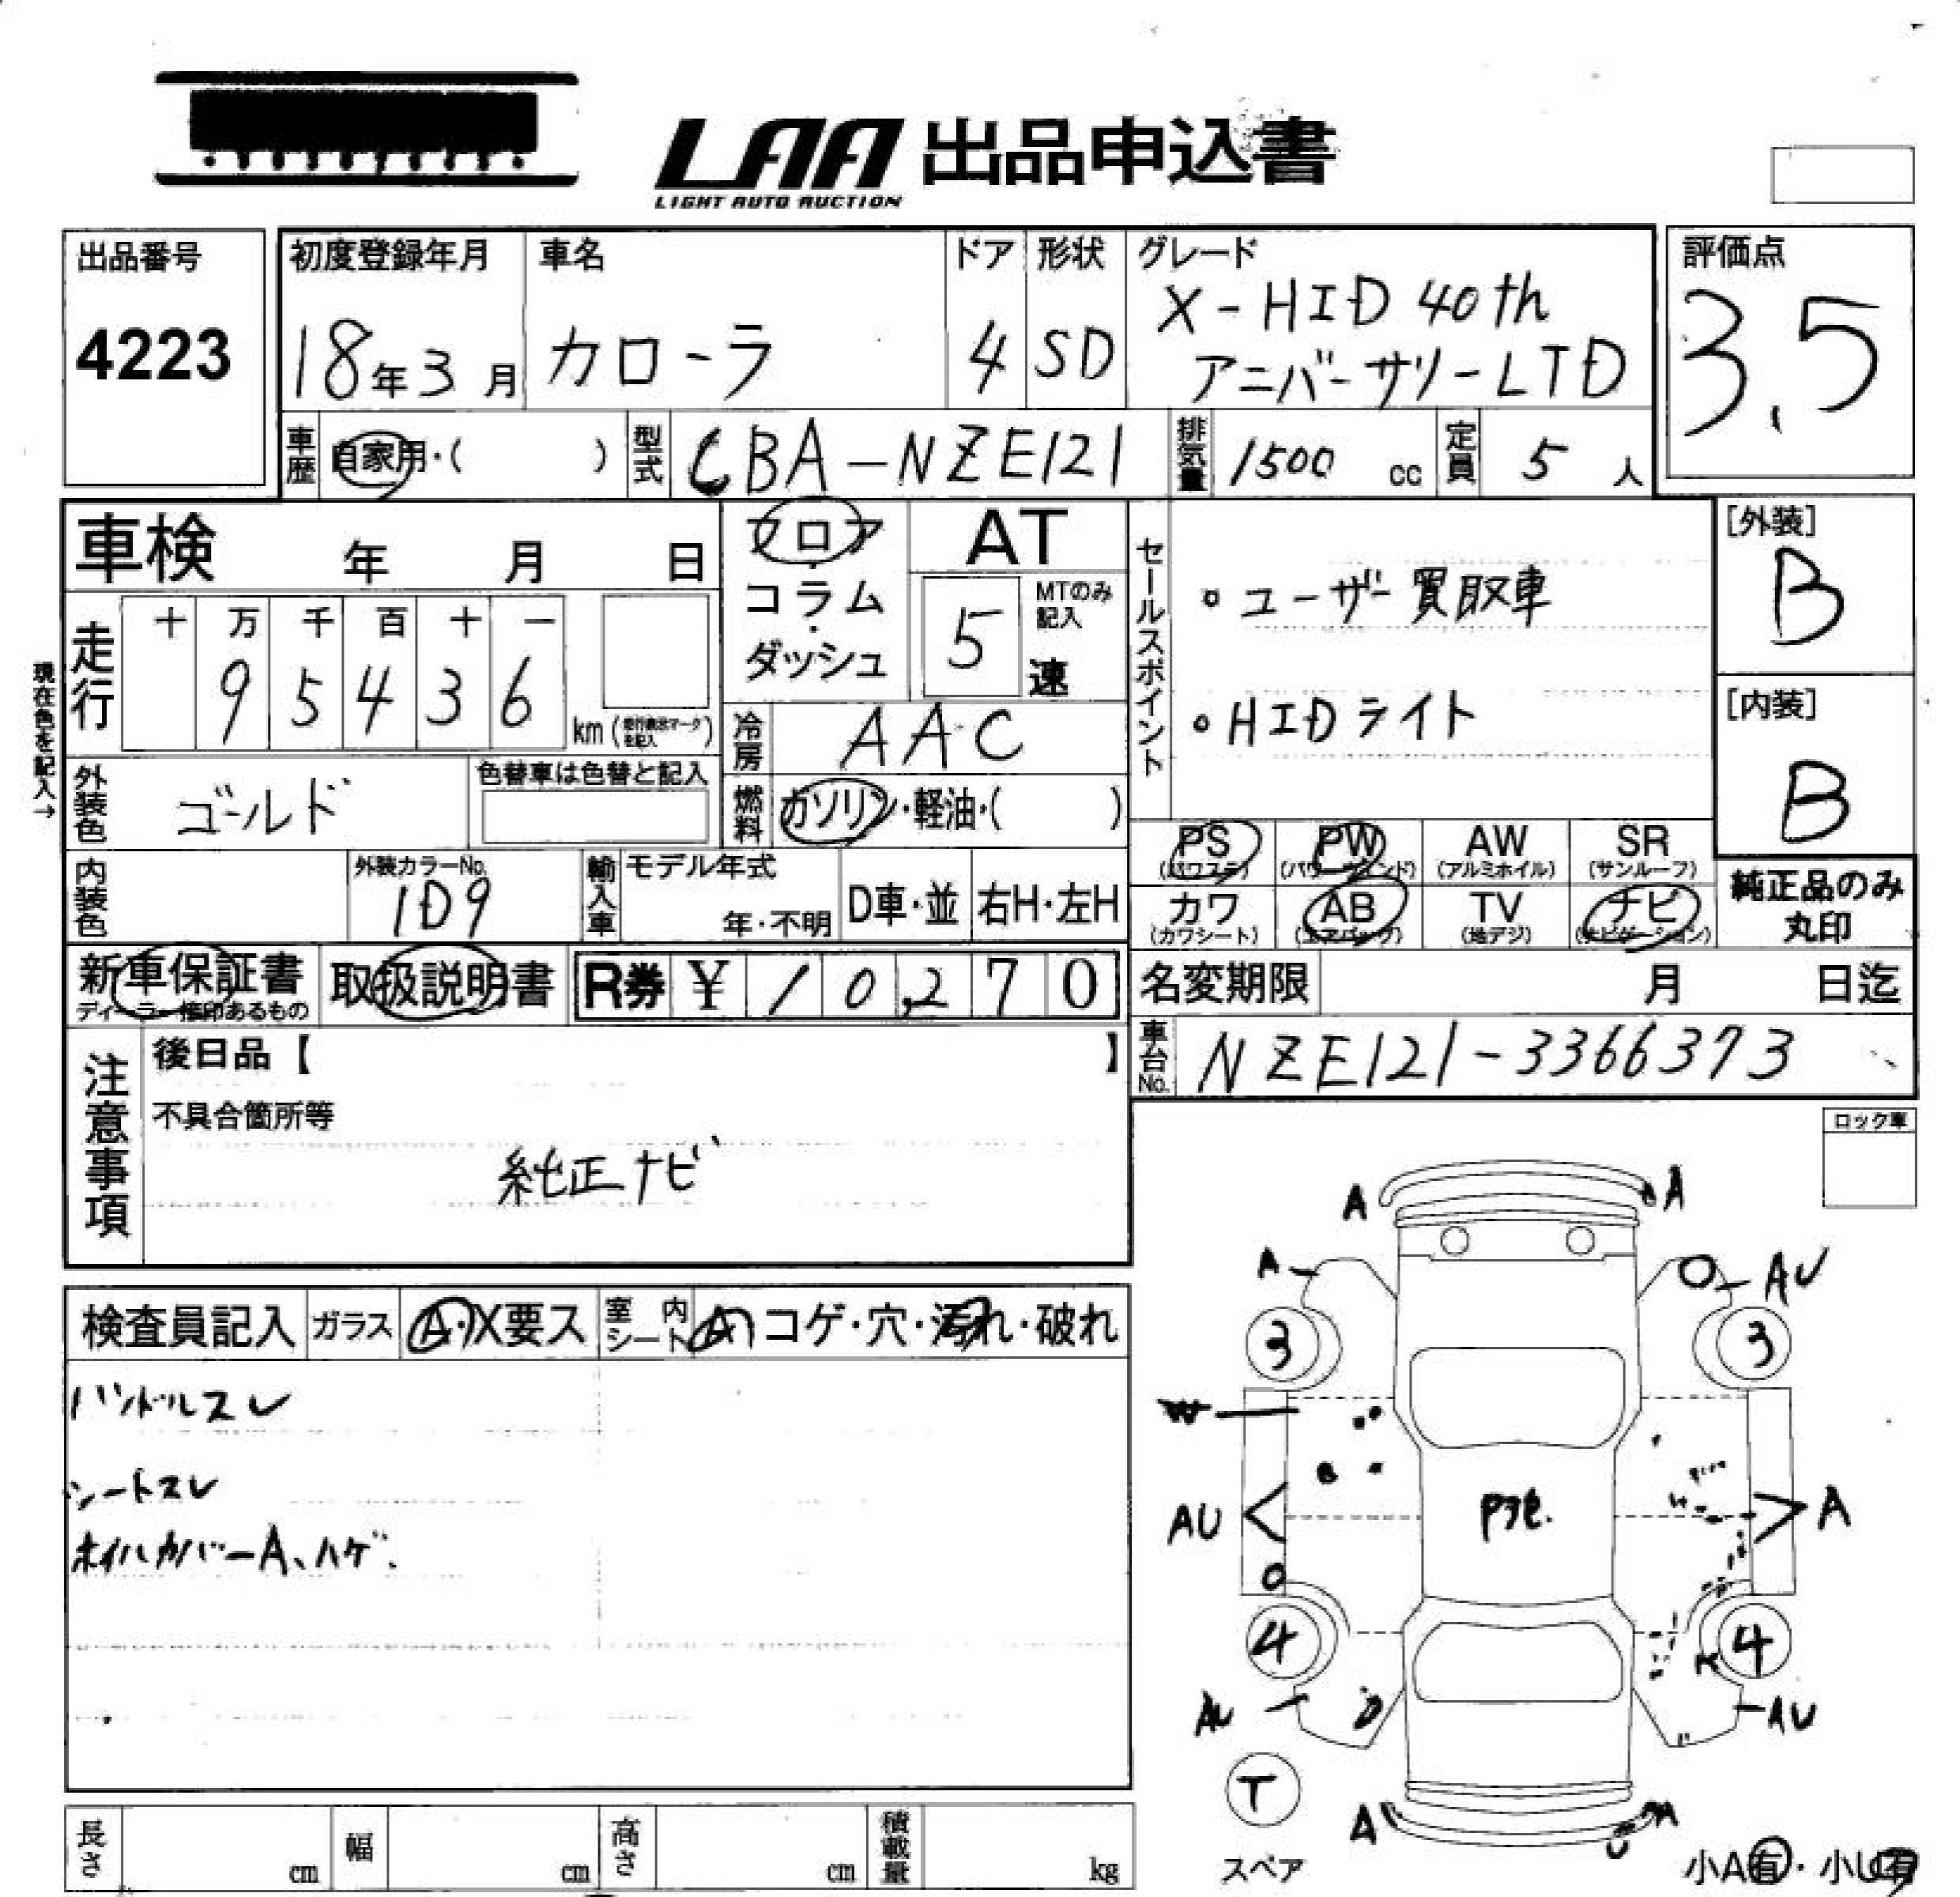 LAA 出品申込書
LIGHT AUTO AUCTION
出品番号
4223
初度登録年月
18年3月
車名
カローラ
ドア
4
形状
SD
グレード
X-HID 40th
アニバーサリーLTD
評価点
3.5
車歴
自家用・( )
型式
CBA-NZE121
排気量
1500 cc
定員
5 人
車検 年 月 日
フロア・コラム・ダッシュ
AT
MTのみ記入
5 速
セールスポイント
・ユーザー買取車
・HIDライト
[外装]
B
[内装]
B
現在色を記入→
走行
十 万 千 百 十 一
9 5 4 3 6
km (走行表示マークを記入)
冷房
AAC
外装色
ゴールド
色替車は色替と記入
燃料
ガソリン・軽油・( )
PS (パワステ)
PW (パワーウインド)
AW (アルミホイル)
SR (サンルーフ)
カワ (カワシート)
AB (エアバック)
TV (地デジ)
ナビ (ナビゲーション)
純正品のみ丸印
内装色
外装カラーNo.
1D9
輸入車
モデル年式
年・不明
D車・並
右H・左H
新車保証書
取扱説明書
R券 ¥ 10,270
名変期限 月 日迄
車台No.
NZE121-3366373
注意事項
後日品【 】
不具合箇所等
純正ナビ
ロック車
検査員記入
ガラス
A・X要ス
室内シート
A・コゲ・穴・汚れ・破れ
ハンドルスレ
シートスレ
ホイルカバーA、ハゲ.
A A
A AU
3 3
W
AU A
P3セ.
4 4
AU AU
T
スペア
A A
U
小A有・小U有
長さ cm
幅 cm
高さ cm
積載量 kg